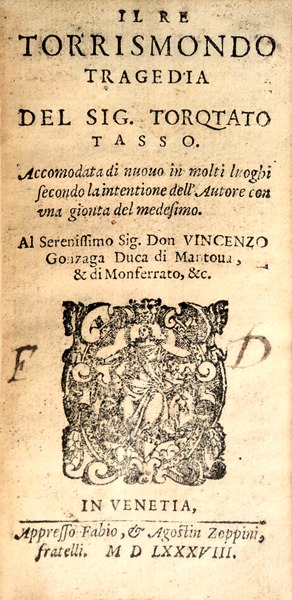 IL RE
TORRISMONDO
TRAGEDIA
DEL SIG. TORQTATO
TASSO.
Accomodata di nuouo in molti luoghi
secondo la intentione dell'Autore con
vna gionta del medesimo.
Al Serenissimo Sig. Don VINCENZO
Gonzaga Duca di Mantoua,
& di Monferrato, &c.
F D
IN VENETIA,
Appresso Fabio, & Agostin Zoppini,
fratelli. M D LXXXVIII.